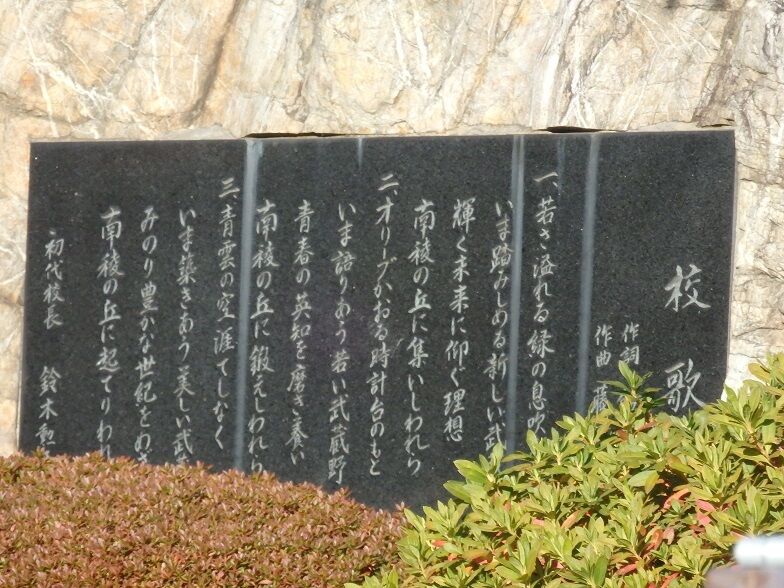 校歌
作詞
作曲
一、若さ溢れる緑の息吹
いま踏みしめる新しい武
輝く未来に仰ぐ理想
南稜の丘に集いしわれら
二、オリーブかおる時計台のもと
いま語りあう若い武蔵野
青春の英知を磨き養い
南稜の丘に鍛えしわれら
三、青雲の空涯てしなく
いま築きあう美しい武
みのり豊かな世紀をめざ
南稜の丘に起てりわれ
初代校長 鈴木勲